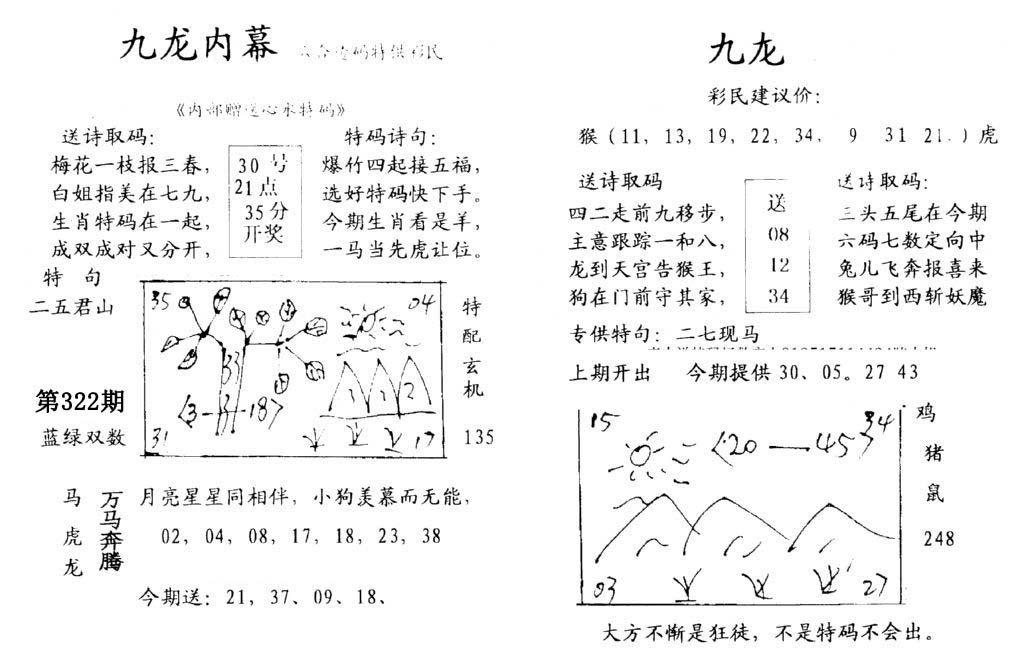 九龙内幕
特供彩民
《内部赠送心水特码》
送诗取码：
梅花一枝报三春，
白姐指美在七九，
生肖特码在一起，
成双成对又分开，
30号
21点
35分
开奖
特码诗句：
爆竹四起接五福，
选好特码快下手。
今期生肖看是羊，
一马当先虎让位。
特 句
二五君山
第322期
蓝绿双数
35
04
33
13
187
31
17
特配玄机
135
马
虎
龙
万马奔腾
月亮星星同相伴，小狗羡慕而无能，
02，04，08，17，18，23，38
今期送：21，37、09、18、
九龙
彩民建议价：
猴（11，13，19，22，34， 9 31 21.）虎
送诗取码
四二走前九移步，
主意跟踪一和八，
龙到天宫告猴王，
狗在门前守其家，
送
08
12
34
送诗取码：
三头五尾在今期
六码七数定向中
兔儿飞奔报喜来
猴哥到西斩妖魔
专供特句：二七现马
上期开出 今期提供 30、05。27 43
15
34
20—45
03
27
鸡
猪
鼠
248
大方不惭是狂徒，不是特码不会出。